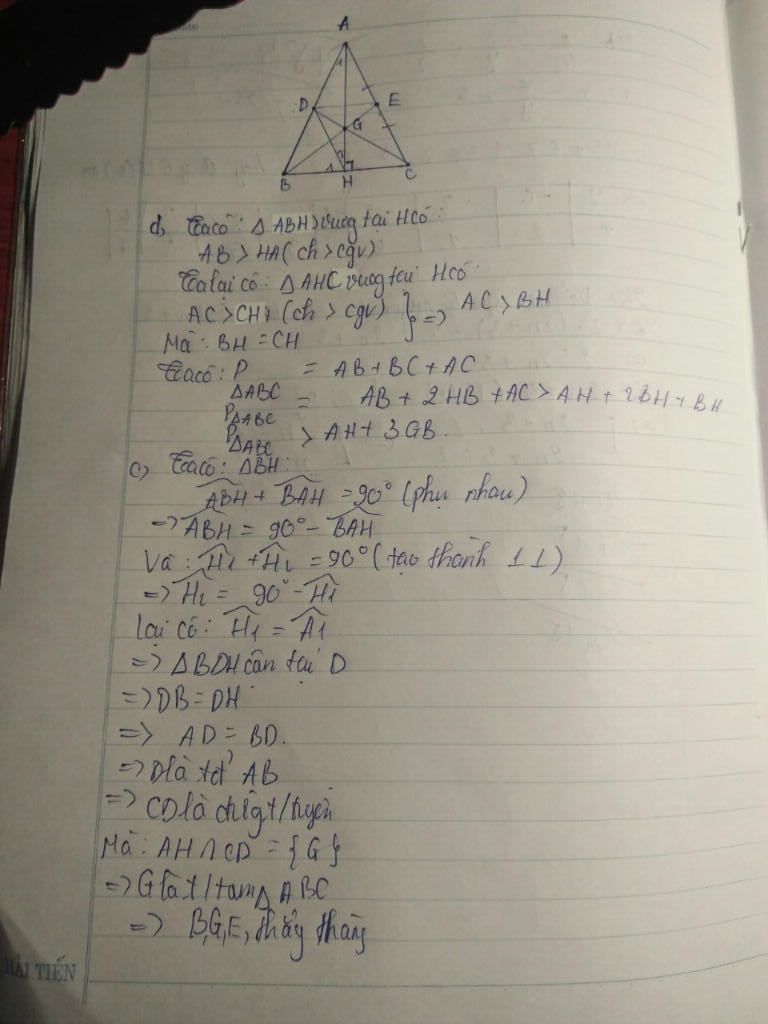 A
1
D
E
G
2
1
B
H
C
d, Ta có: Δ ABH vuog tại H có:
AB > HA (ch > cgv)
Ta lại có: Δ AHC vuog tại H có:
AC > CH (ch > cgv) } => AC > BH
Mà: BH = CH
Ta có: P = AB + BC + AC
ΔABC = AB + 2HB + AC > AH + 2BH + BH
PΔABC
PΔABC > AH + 3GB.
c) Ta có: ΔBH:
ABH + BAH = 90° (phụ nhau)
=> ABH = 90° - BAH
Và: H1 + H2 = 90° (tạo thành 1 ⊥)
=> H2 = 90° - H1
Lại có: H1 = A1
=> Δ BDH cân tại D
=> DB = DH
=> AD = BD.
=> D là tđ' AB
=> CD là đg t/tuyến
Mà: AH ∩ CD = {G}
=> G là t/tam Δ ABC
=> B,G,E, thẳg thàg
HẢI TIẾN